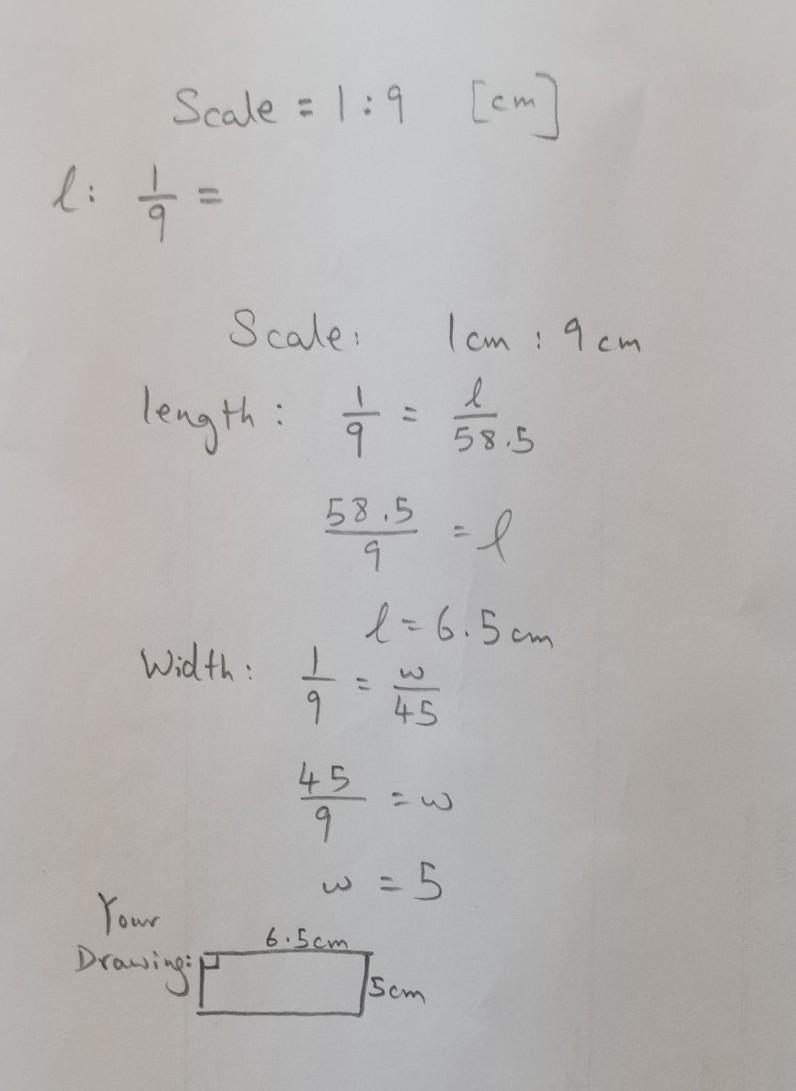 Scale = 1 : 9 [cm]
l: 1/9 =
Scale: 1cm : 9 cm
length: 1/9 = l/58.5
58.5/9 = l
l = 6.5 cm
Width: 1/9 = w/45
45/9 = w
w = 5
Your
6.5cm
Drawing:
5cm